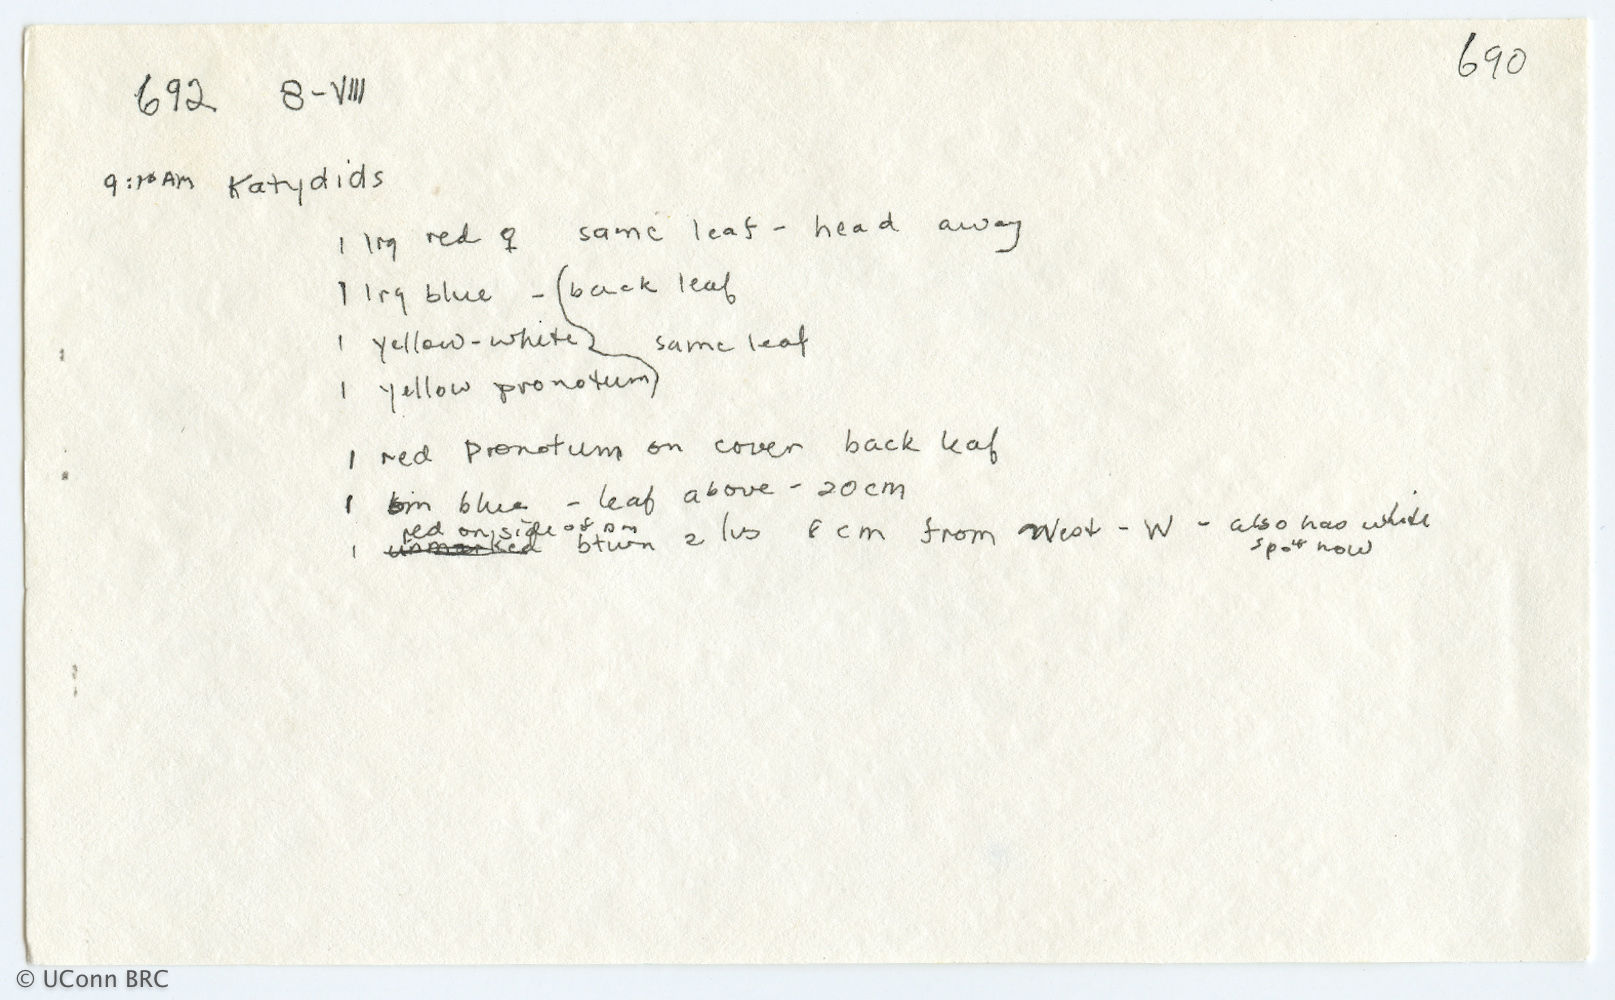 690
692 8-VIII
9:10 AM Katydids
1 lrg red ♀ same leaf - head away
1 lrg blue - (back leaf
1 yellow-white same leaf
1 yellow pronotum)
1 red pronotum on cover back leaf
1 blue - leaf above - 20cm
red on side of
1 unmarked btwn 2 lvs 8 cm from West - W - also has white
spot now
© UConn BRC